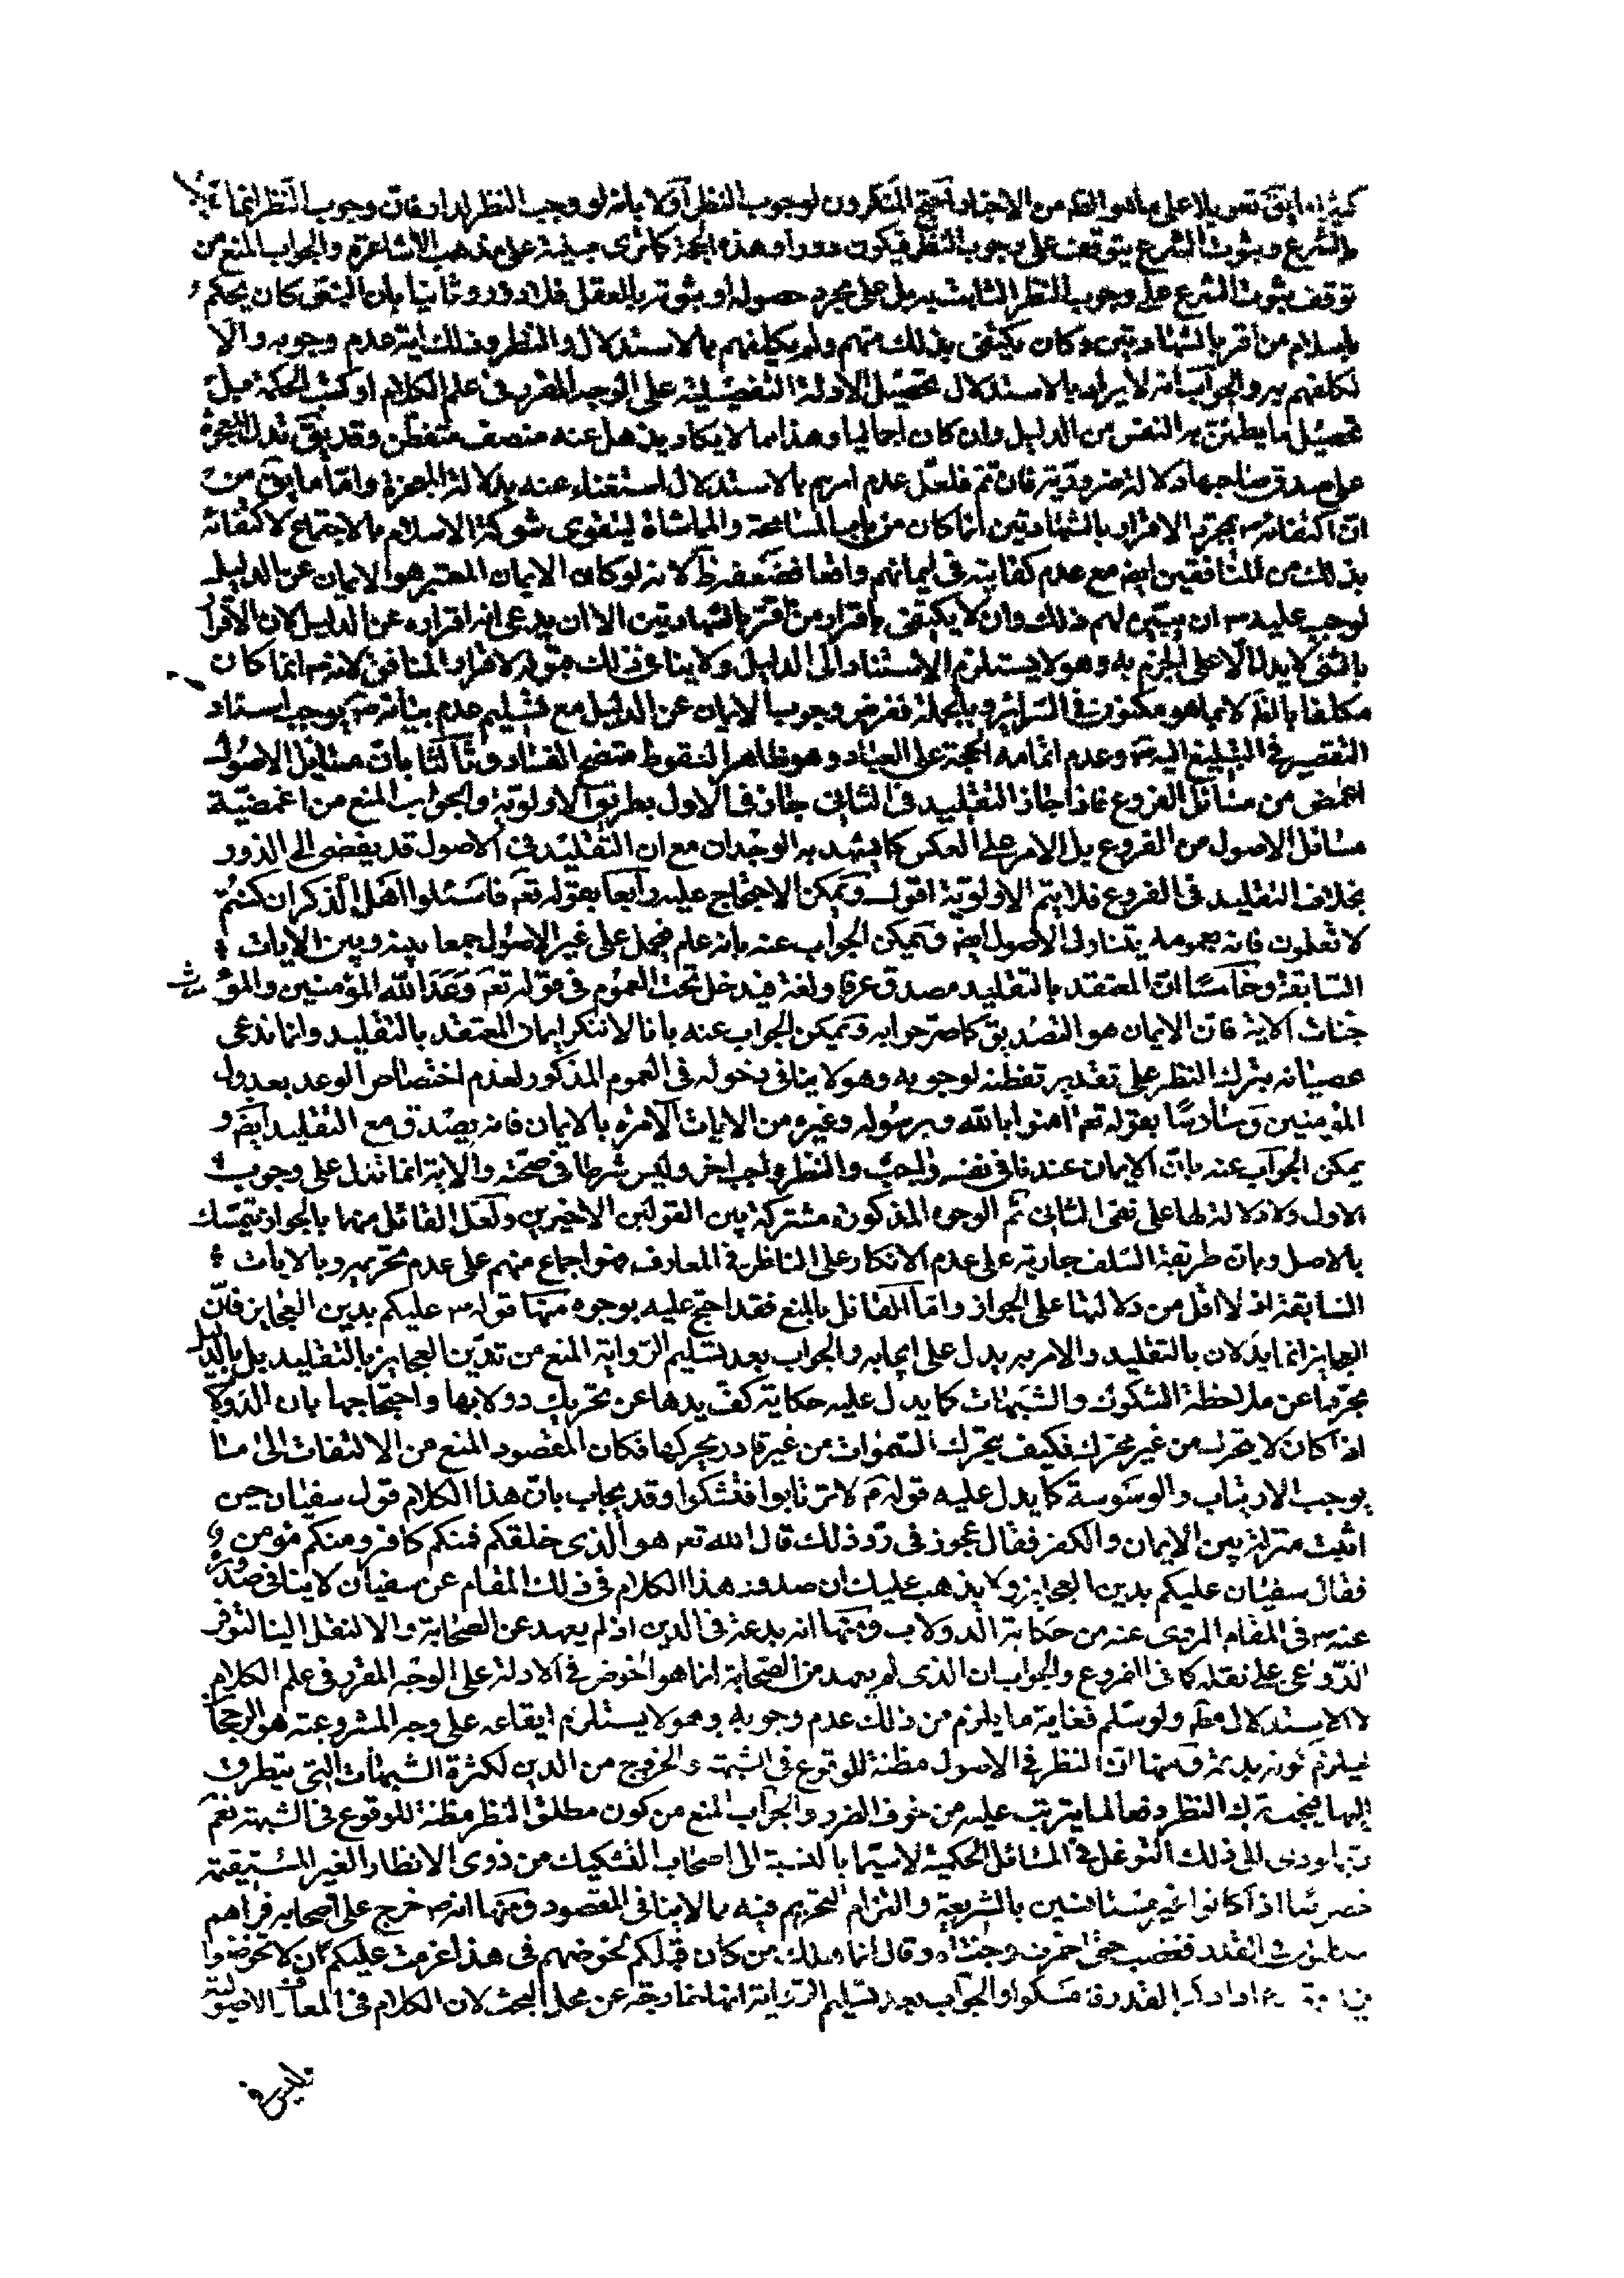 كثيرا ما يتفق تعويلا على ما هو الظ من الاخبار احتج المنكرون لوجوب النظر اولا بانه لو وجب النظر لدار فان وجوب النظر انما يثبت
بالشرع وثبوت الشرع يتوقف على وجوب النظر فيكون دورا وهذه الحجة كما ترى مبنية على مذهب الاشاعرة والجواب المنع من
توقف ثبوت الشرع على وجوب النظر الثابت به بل على مجرد حصوله او ثبوته بالعقل فلا دور وثانيا بان النبي كان يحكم
باسلام من اقر بالشهادتين وكان يكتفى بذلك منهم ولم يكلفهم بالاستدلال والنظر وذلك اية عدم وجوبه والا
لكلفهم به والجواب انه لا يراد بالاستدلال تحصيل الادلة التفصيلية على الوجه المقرر في علم الكلام او كتب الحكمة بل
تحصيل ما يطمئن به النفس من الدليل وان كان اجماليا وهذا مما لا يكاد يذهل عنه منصف متفطن وقد يق تدل المعجزة
على صدق صاحبها دلالة ضرورية فان تم فلعل عدم امرهم بالاستدلال استغناء عنه بدلالة المعجزة واما ما يق من
ان اكتفائه ص بمجرد الاقرار بالشهادتين انما كان من باب المسامحة والمماشاة ليتقوى شوكة الاسلام بالاجتماع لاكتفائه
بذلك من المنافقين ايض مع عدم كفايته في ايمانهم واقعا فضعفه ظ لانه لو كان الايمان المعتبر هو الايمان عن الدليل
لوجب عليه ص ان يبين لهم ذلك وان لا يكتفى باقرار من اقر بالشهادتين الا ان يدعى انه اقراره عن الدليل لان الاقرار
بالشئ لا يدل الا على الجزم به وهو لا يستلزم الاستناد الى الدليل ولا ينافى ذلك قبوله لاقرار المنافق لانه ص انما كان
مكلفا بالظ لا بما هو مكنون في السرائر وبالجملة ففرض وجوب الايمان عن الدليل مع تسليم عدم بيانه ص يوجب اسناد
التقصير في التبليغ اليه ص وعدم اتمامه الحجة على العباد وهو ظاهر السقوط متضح الفساد وثالثا بان مسائل الاصول
اغمض من مسائل الفروع فاذا جاز التقليد في الثانى جاز في الاول بطريق الاولوية والجواب المنع من اغمضية
مسائل الاصول من الفروع بل الامر على العكس كما يشهد به الوجدان مع ان التقليد في الاصول قد يفضى الى الدور
بخلاف التقليد في الفروع فلا يتم الاولوية اقول ويمكن الاحتجاج عليه رابعا بقوله تعم فاسئلوا اهل الذكر ان كنتم
لا تعلمون فانه بعمومه يتناول الاصول ايض ويمكن الجواب عنه بانه عام فيحمل على غير الاصول جمعا بينه وبين الايات
السابقة وخامسا ان المعتقد بالتقليد مصدق عرفا ولغة فيدخل تحت العموم في قوله تعم وعد الله المؤمنين والمؤمنات
جنات الاية فان الايمان هو التصديق كما صرحوا به ويمكن الجواب عنه بانا لا ننكر ايمان المعتقد بالتقليد وانما ندعى
عصيانه بترك النظر على تقدير تفطنه لوجوبه وهو لا ينافى دخوله في العموم المذكور لعدم اختصاص الوعد بعدول
المؤمنين وسادسا بقوله تعم امنوا بالله وبرسوله وغيره من الايات الآمرة بالايمان فانه يصدق مع التقليد ايض و
يمكن الجواب عنه بان الايمان عندنا في نفسه واجب والنظر واجب اخر وليس شرطا في صحته والاية انما تدل على وجوب
الاول ولا دلالة لها على نفى الثانى ثم الوجوه المذكورة مشتركة بين القولين الاخيرين ولعل القائل منهما بالجواز يتمسك
بالاصل وبان طريقة السلف جارية على عدم الانكار على الناظر في المعارف فهو اجماع منهم على عدم تحريمه وبالايات
السابقة اذ لا اقل من دلالتها على الجواز واما القائل بالمنع فقد احتج عليه بوجوه منها قوله ص عليكم بدين العجايز فان
العجايز انما يدلان بالتقليد والامر به يدل على ايجابه والجواب بعد تسليم الرواية المنع من تدين العجايز بالتقليد بل بالدليل
مجردا عن ملاحظة الشكوك والشبهات كما يدل عليه حكاية كف يدها عن تحريك دولابها واحتجاجها بان الدولاب
اذا كان لا يتحرك من غير محرك فكيف يتحرك السموات من غير قادر يحركها فكان المقصود المنع من الالتفات الى ما
يوجب الارتياب والوسوسة كما يدل عليه قوله م لا ترتابوا فتشكوا وقد يجاب بان هذا الكلام قول سفيان حين
اثبت منزلة بين الايمان والكفر فقال عجوز في رد ذلك قال الله تعم هو الذى خلقكم فمنكم كافر ومنكم مؤمن
فقال سفيان عليكم بدين العجايز ولا يذهب عليك ان صدور هذا الكلام في ذلك المقام عن سفيان لا ينافى صدوره
عنه ص في المقام المروى عنه من حكاية الدولاب ومنها انه بدعة في الدين اذ لم يعهد عن الصحابة والا لنقل الينا لتوفر
الدواعى على نقله كما في الفروع والجواب ان الذى لم يعهد من الصحابة انما هو الخوض في الادلة على الوجه المقرر في علم الكلام
لا الاستدلال مطم ولو سلم فغاية ما يلزم من ذلك عدم وجوبه وهو لا يستلزم ايقاعه على وجه المشروعية هو الرجحان
فيلزم كونه بدعة ومنها ان النظر في الاصول مظنة للوقوع في الشبهة والخروج من الدين لكثرة الشبهات التى يتطرق
اليها فيجب ترك النظر دفعا لما يترتب عليه من خوف الضرر والجواب المنع من كون مطلق النظر مظنة للوقوع في الشبهة نعم
ربما يودى الى ذلك التوغل في المسائل الحكمية لا سيما بالنسبة الى اصحاب التشكيك من ذوى الانظار الغير المستقيمة
خصوصا اذا كانوا غير مستانسين بالشريعة والتزام التحريم فيه مما لا ينافى المقصود ومنها انه ص خرج على اصحابه فراهم
في القدر فغضب حتى احمرت وجنتاه وقال انما هلك من كان قبلكم لخوضهم في هذا عزمت عليكم ان لا تخوضوا
القدر فامسكوا والجواب بعد تسليم الرواية انها خارجة عن محل البحث لان الكلام في المعارف الاصولية